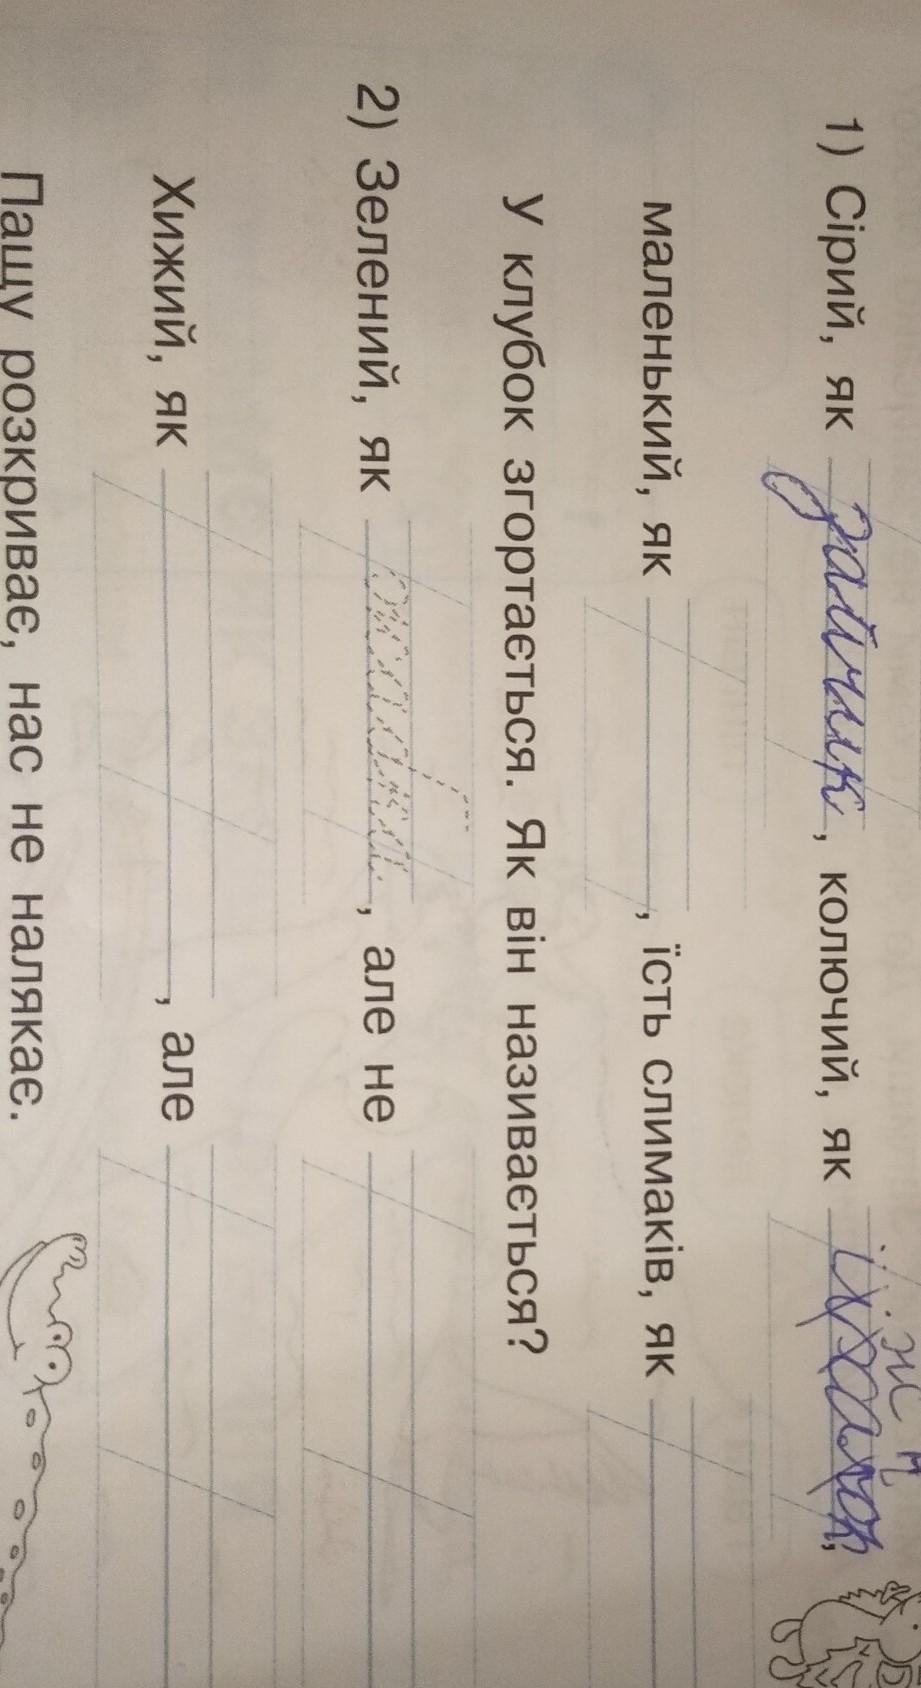 1) Сірий, як зайчик, колючий, як
маленький, як , їсть слимаків, як
У клубок згортається. Як він називається?
2) Зелений, як , але не
Хижий, як , але
Пащу розкриває, нас не налякає.